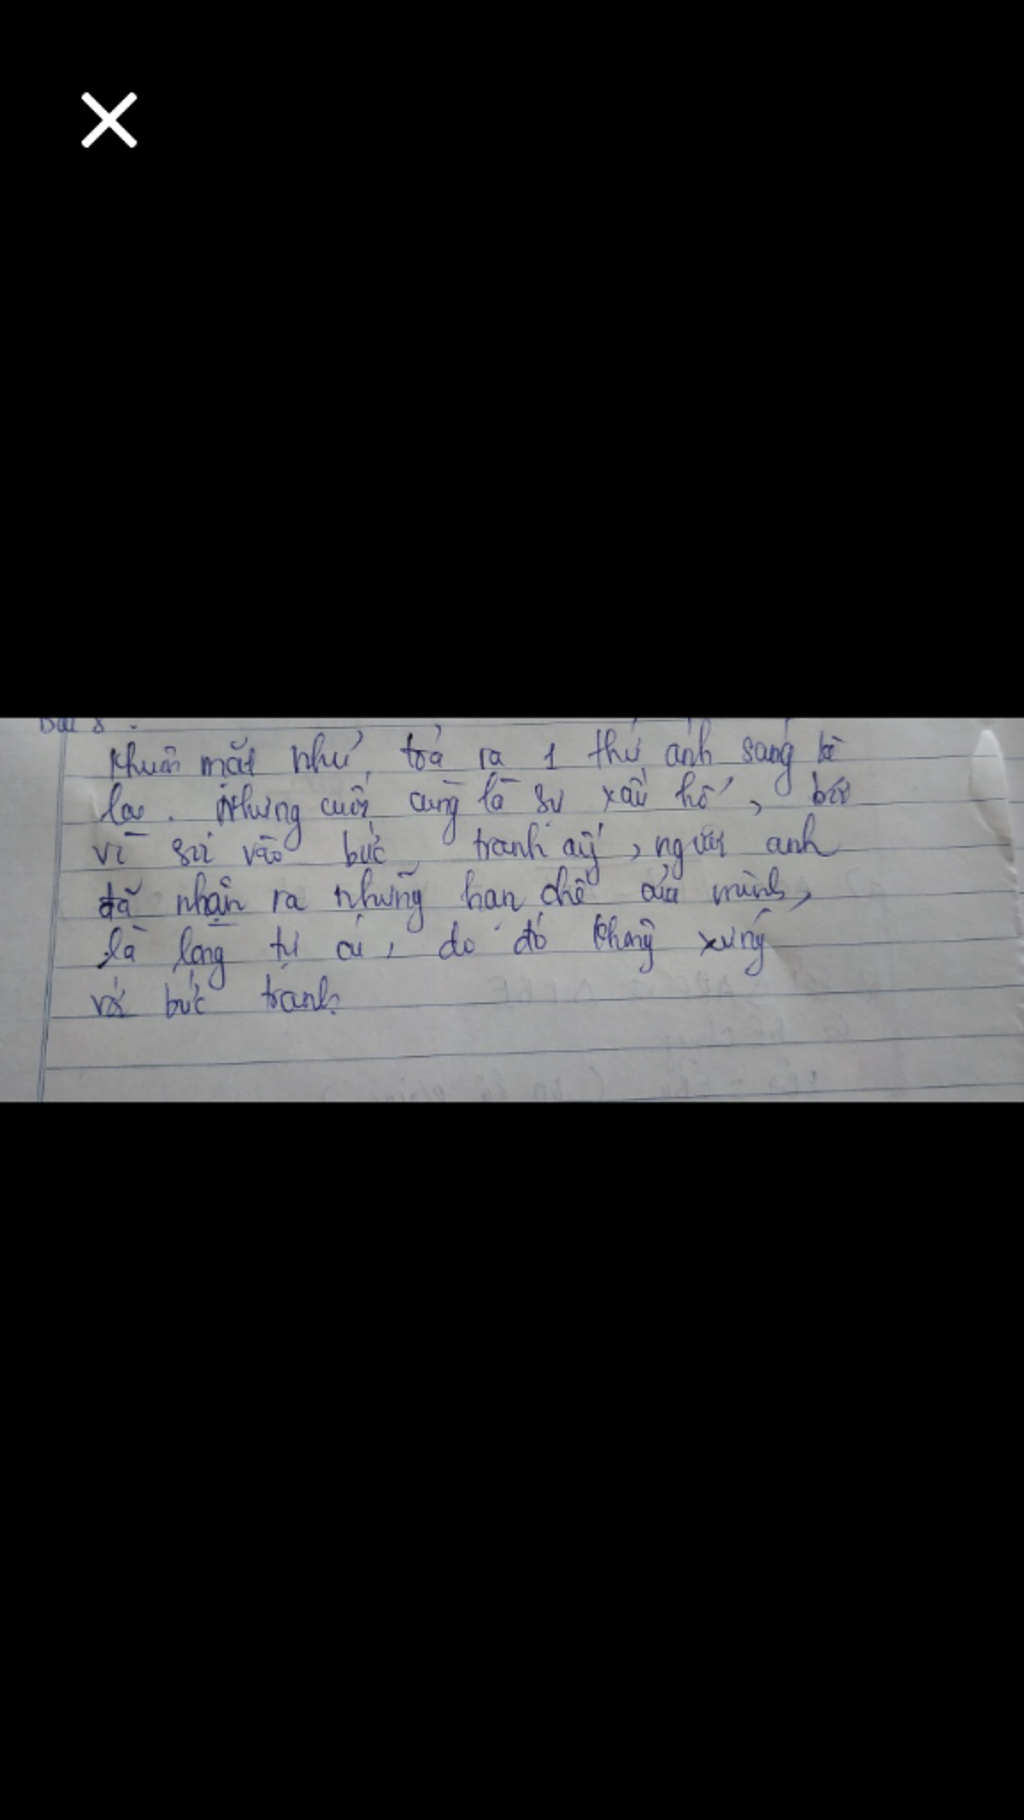 Bài 8.
khuôn mặt như toả ra 1 thứ ánh sáng kì
lạ. Nhưng cuối cùng là sự xấu hổ, bởi
vì soi vào bức tranh ấy, người anh
đã nhận ra những hạn chế của mình,
là lòng tự ái, do đó không xứng
với bức tranh.